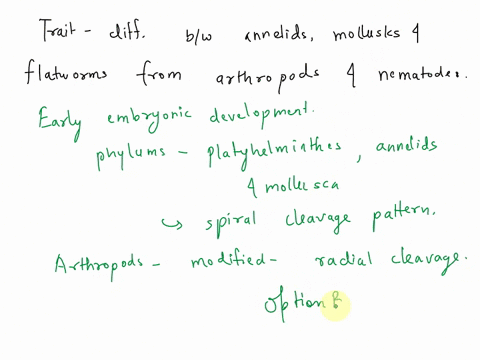 Trait - diff. b/w annelids, mollusks &
flatworms from arthropods & nematodes.
Early embryonic development.
phylums - platyhelminthes, annelids
& mollusca
↳ spiral cleavage pattern.
Arthropods - modified - radial cleavage.
Option B